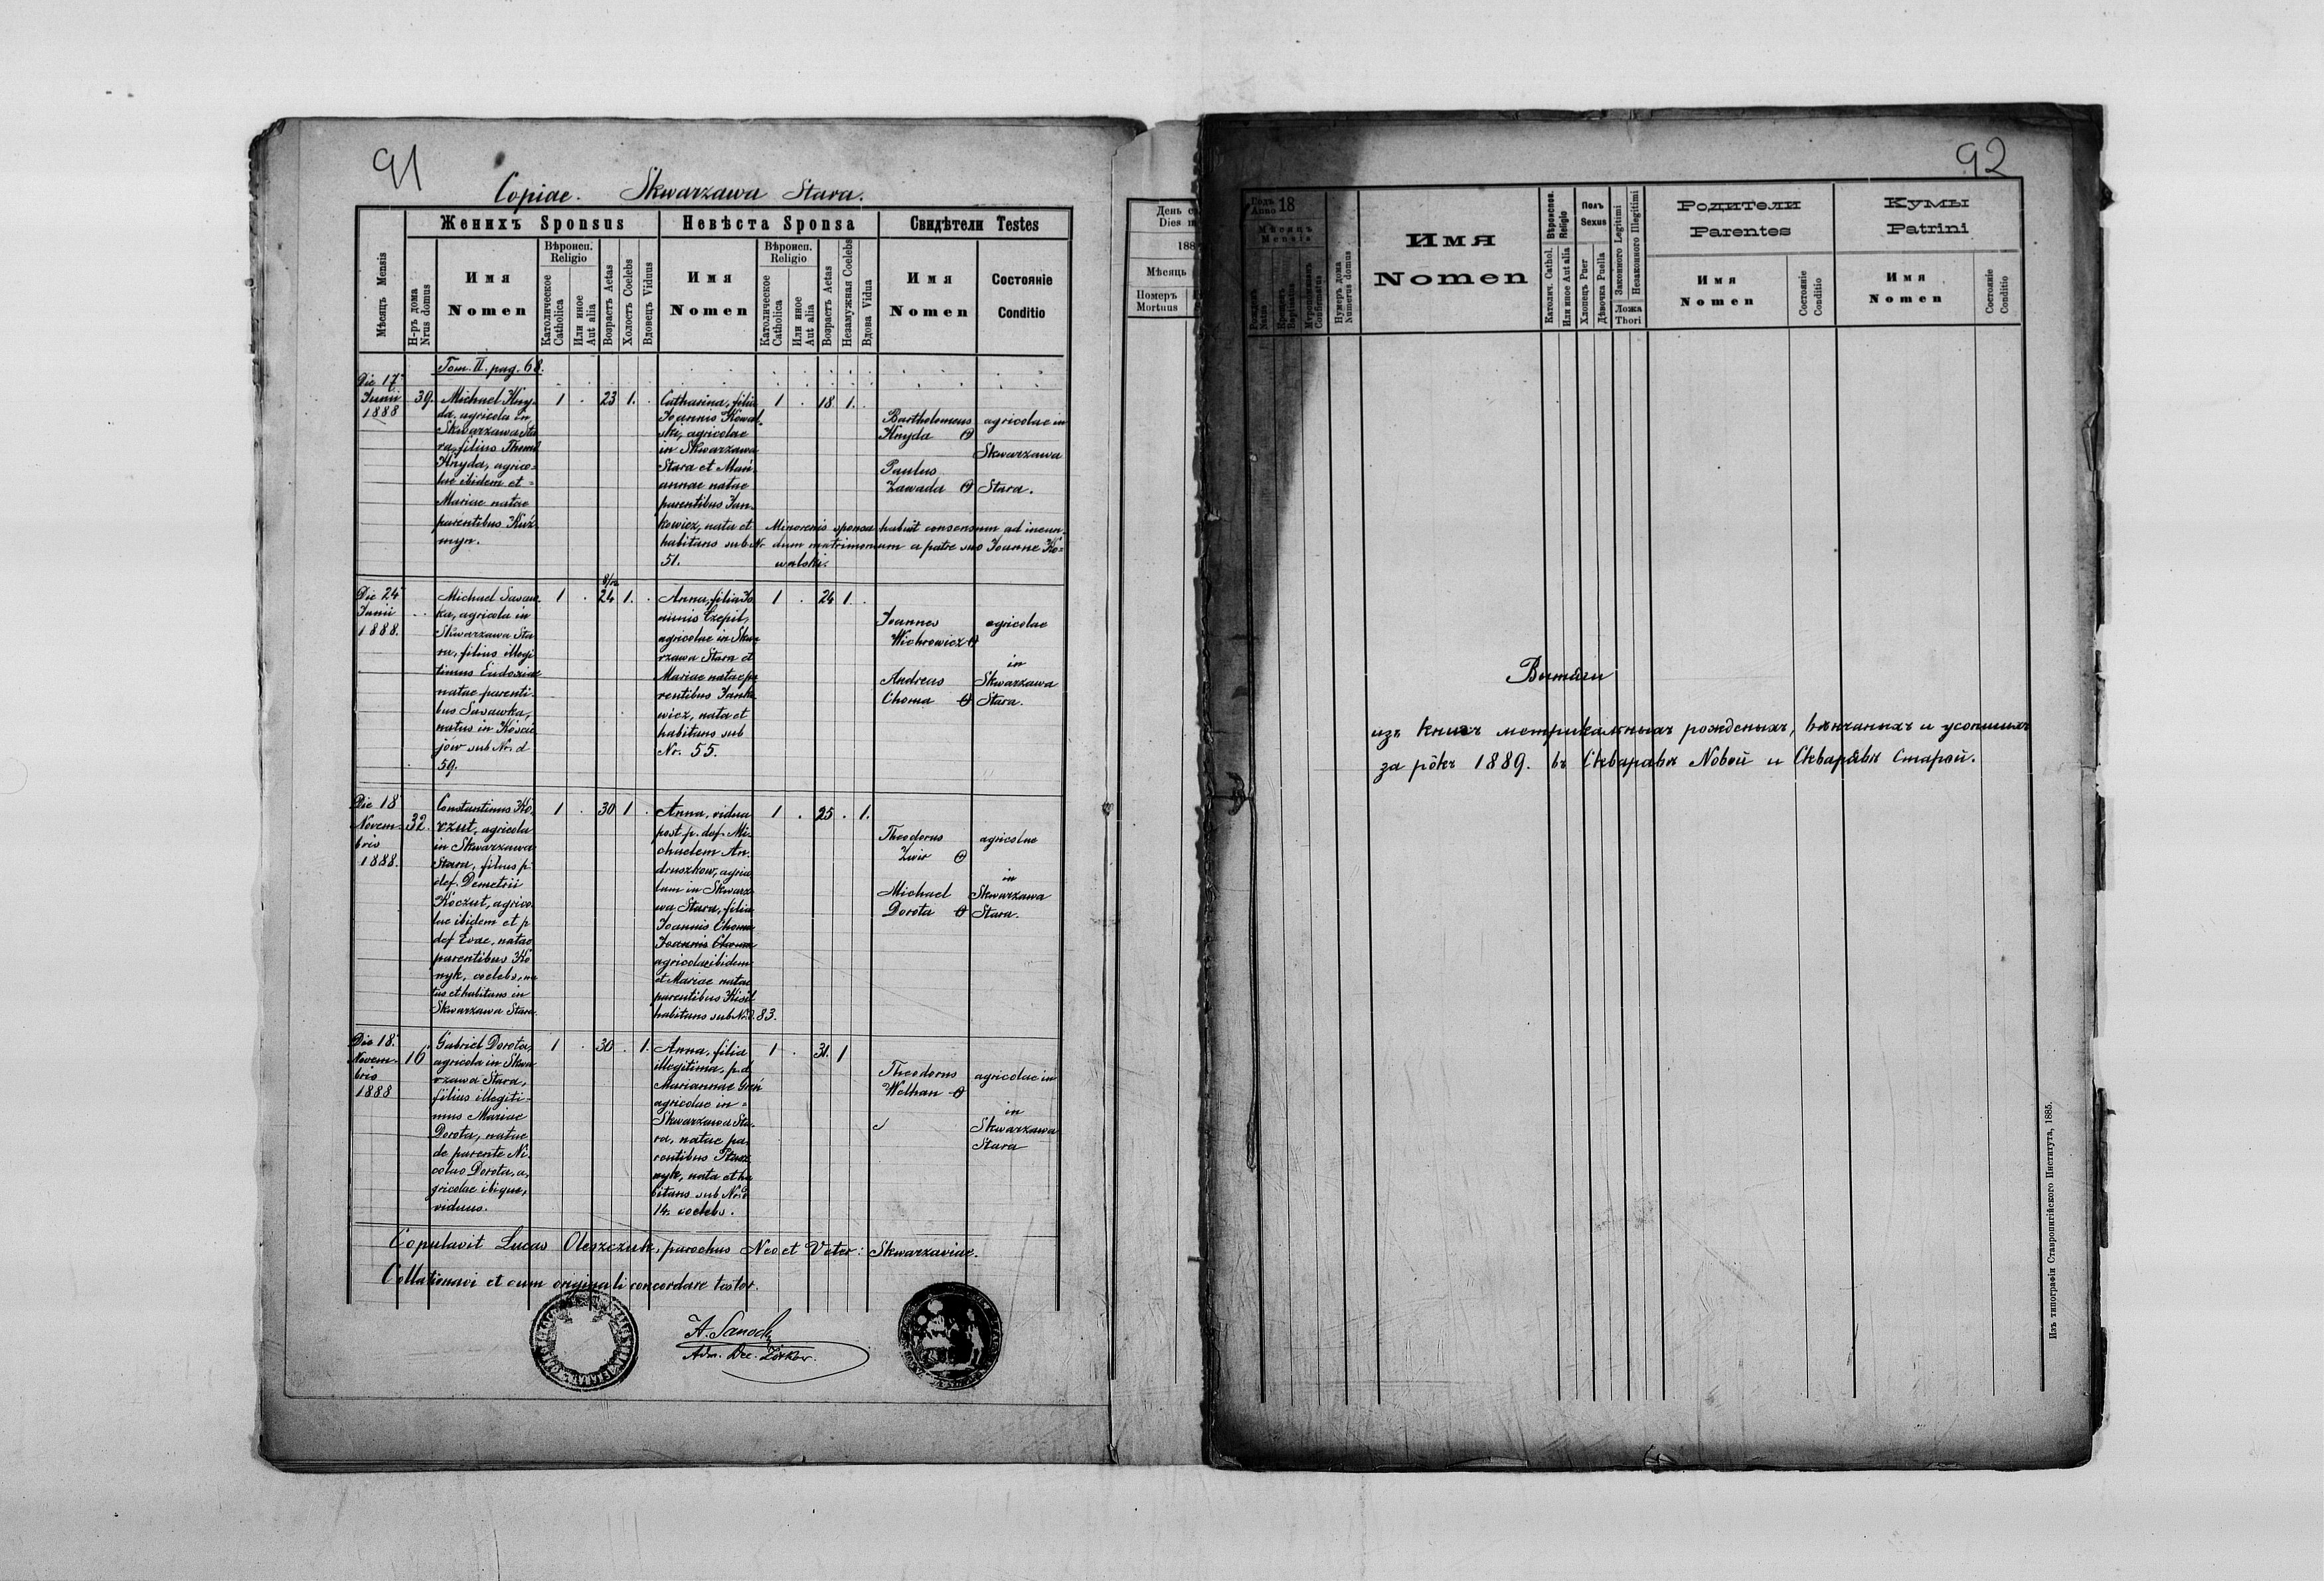 91
Copiae. Skwarzawa Stara.
Мѣсяцъ Mensis
Н-ръ дома
Nrus domus
Женихъ Sponsus
Имя
Nomen
Вѣроисп.
Religio
Католическое
Catholica
Или иное
Aut alia
Возрастъ Aetas
Холостъ Coelebs
Вдовецъ Viduus
Невѣста Sponsa
Имя
Nomen
Вѣроисп.
Religio
Католическое
Catholica
Или иное
Aut alia
Возрастъ Aetas
Незамужная Coelebs
Вдова Vidua
Свидѣтели Testes
Имя
Nomen
Состояніе
Conditio
Tom. II. pag. 68.
Die 17
Junii
1888
39.
Michael Kny-
da, agricola in
Skwarzawa Sta
ra, filius Thomae
Knyda, agrico=
lae ibidem et=
Mariae natae
parentibus Kuź
myn.
1 . 23 1. .
Catharina, filia
Joannis Kowal-
ski, agricolae
in Skwarzawa
Stara et Mari-
annae natae
parentibus Jan-
kowicz, nata et
habitans sub Nr
51.
1 . 18 1. .
Bartholomeus
Knyda
Paulus
Zawada
agricolae in
Skwarzawa
Stara.
Minorenis sponsa habuit consensum ad ineun-
dum matrimonium a patre suo Joanne Ko=
walski.
Die 24
Junii
1888.
Michael Savaw
ka, agricola in
Skwarzawa Sta
ra, filius illegi
timus Eudoxiae
natae parenti-
bus Savawka,
natus in Koście
jów sub Nr. d
59.
1 . 24 1. .
Anna, filia Jo
annis Czepil,
agricolae in Skwa
rzawa Stara et
Mariae natae pa
rentibus Janko
wicz, nata et
habitans sub
Nr. 55.
1 . 24 1. .
Joannes
Wichrowicz
Andreas
Choma
agricolae
in
Skwarzawa
Stara.
Die 18
Novem-
bris
1888.
32.
Constantinus Ko
czut, agricola
in Skwarzawa
Stara, filius p.
def. Demetrii
Koczut, agrico
lae ibidem et p
def Evae, natae
parentibus Ko
nyk, coelebs, na
tus et habitans in
Skwarzawa Stara.
1 . 30 1 .
Anna, vidua
post p. def. Mi-
chaelem An-
druszkow, agrico
lam in Skwarza
wa Stara, filia
Joannis Choma
Joannis Choma
agricolae ibidem
et Mariae natae
parentibus Kisil
habitans sub Nr. d. 83.
1 . 25 . 1.
Theodorus
Zwir
Michael
Dorota
agricolae
in
Skwarzawa
Stara.
Die 18.
Novem-
bris
1888
16
Gabriel Dorota,
agricola in Skwa
rzawa Stara,
filius illegiti-
mus Mariae
Dorota, natae
de parente Ni-
colao Dorota, a,
gricolae ibique,
viduus.
1 . 30 . 1.
Anna, filia
illegitima, p.d.
Mariannae
agricolae in=
Skwarzawa Sta-
ra, natae pa-
rentibus
nyk, nata et ha
bitans sub Nr. d
14. coelebs.
1 . 31. 1
Theodorus
Wolhan
agricolae in
in
Skwarzawa
Stara
Copulavit Lucas Oleszczuk, parochus Neo et Veter: Skwarzaviae.
Collationavi et cum originali concordare testor.
A. Sanocki
Adm. Dec. Żółkov.
День с
Dies m
188
Мѣсяцъ
Номеръ
Mortuus
92
Годъ
Anno 18
Мѣсяцъ
Mensis
Нумеръ дома
Numerus domus
Имя
Nomen
Вѣроиспов.
Religio
Католич. Cathol.
Или иное Aut alia
Полъ
Sexus
Хлопецъ Puer
Дѣвочка Puella
Законного Legitimi
Незаконного Illegitimi
Ложа
Thori
Родители
Parentes
Имя
Nomen
Состояніе
Conditio
Кумы
Patrini
Имя
Nomen
Состояніе
Conditio
Вытяги
изъ книгъ метрикальныхъ рожденыхъ, вѣнчанныхъ и усопшихъ
за рôкъ 1889. въ Скварявѣ Новой и Скварявѣ Старой.
Изъ типографіи Ставропигійского Института, 1885.